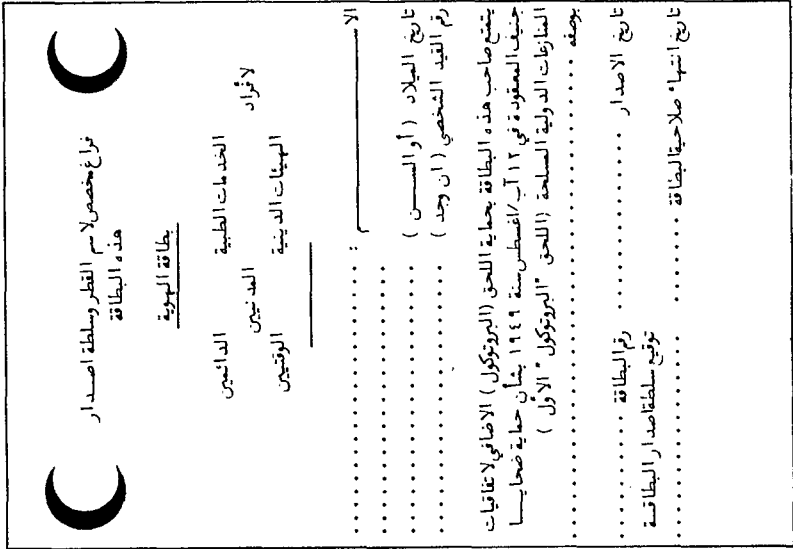 فراغ مخصص لاسم القطر وسلطة اصدار
هذه البطاقة
بطاقة الهوية
الخدمات الطبية الدائمين
لأفراد المدنيين
الهيئات الدينية الوقتيين
الاســـــم : ..............................
..............................
تاريخ الميلاد ( أو الســـن ) ....................
رقم القيد الشخصي ( ان وجد ) ....................
يتمتع صاحب هذه البطاقة بحماية اللحق (البروتوكول) الاضافي لاتفاقيات
جنيف المعقودة في ١٢ آب/اغسطس سنة ١٩٤٩ بشأن حماية ضحايــا
المنازعات الدولية المسلحة (اللحق "البروتوكول" الأول )
بوصفه ........................................
تاريخ الاصدار ................ رقم البطاقة ............
توقيع سلطة اصدار البطاقــة
تاريخ انتهاء صلاحية البطاقة ........ ................